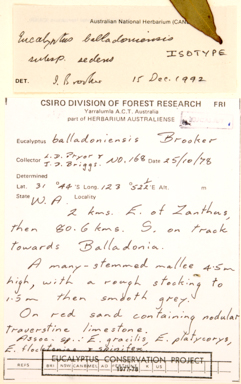 Australian National Herbarium (CAN
Eucalyptus balladoniensis
subsp. sedens
ISOTYPE
DET. I. Brooker 15 Dec. 1992
CSIRO DIVISION OF FOREST RESEARCH FRI
Yarralumla A.C.T. Australia
part of HERBARIUM AUSTRALIENSE
Eucalyptus balladoniensis Brooker
Collector L.D. Pryor & J.D. Briggs. NO. 168 Date 25/10/78
Determined
Lat. 31° 44' S Long. 123° E Alt. m
State W.A. Locality
2 kms. E. of Zanthus,
then 80.6 kms. S. on track
towards Balladonia.
A many-stemmed mallee 4.5m
high, with a rough stocking to
1.5m then smooth grey.
On red sand containing nodular
traverstine limestone.
Assoc. sp.: E. gracilis, E. platycorys,
E.
EUCALYPTUS CONSERVATION PROJECT
REFS
1977-78